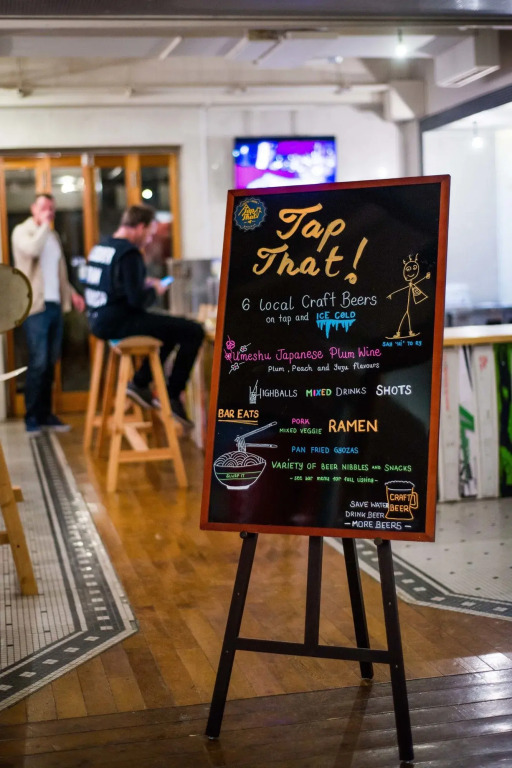 Tap
That!
6 Local Craft Beers
on tap and ICE COLD
SAY "HI" TO
Umeshu Japanese Plum Wine
Plum, Peach and Yuzu flavours
HIGHBALLS MIXED DRINKS SHOTS
BAR EATS
PORK
MIXED VEGGIE RAMEN
PAN FRIED GYOZAS
VARIETY OF BEER NIBBLES AND SNACKS
- see bar menu for full listing -
SLURP IT
SAVE WATER
DRINK BEER
- MORE BEERS -
CRAFT
BEER